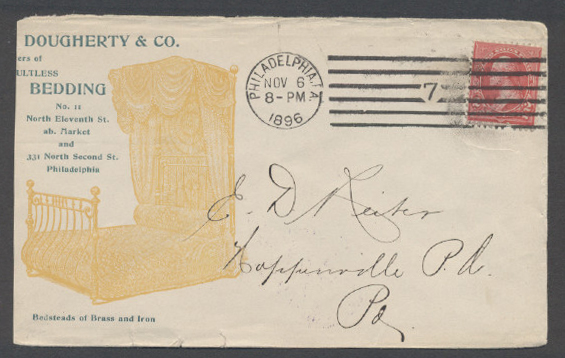 DOUGHERTY & CO.
ers of
ULTLESS
BEDDING
No. 11
North Eleventh St.
ab. Market
and
331 North Second St.
Philadelphia
Bedsteads of Brass and Iron
PHILADELPHIA, PA.
NOV 6
8-PM
1896
7
E. D. Reiter
Hoppenville P.O.
Pa.